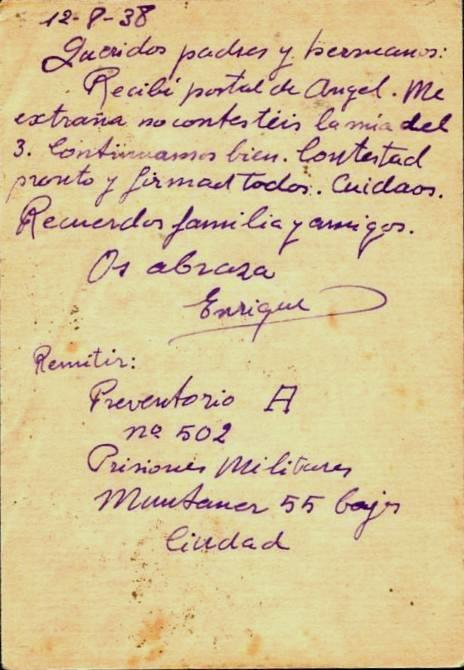 12-8-38
Queridos padres y hermanos:
Recibí postal de Angel. Me
extraña no contestéis la mía del
3. Continuamos bien. Contestad
pronto y firmad todos. Cuidaos.
Recuerdos familia y amigos.
Os abraza
Enrique
Remitir:
Preventorio A
nº 502
Prisiones Militares
Muntaner 55 bajos
Ciudad